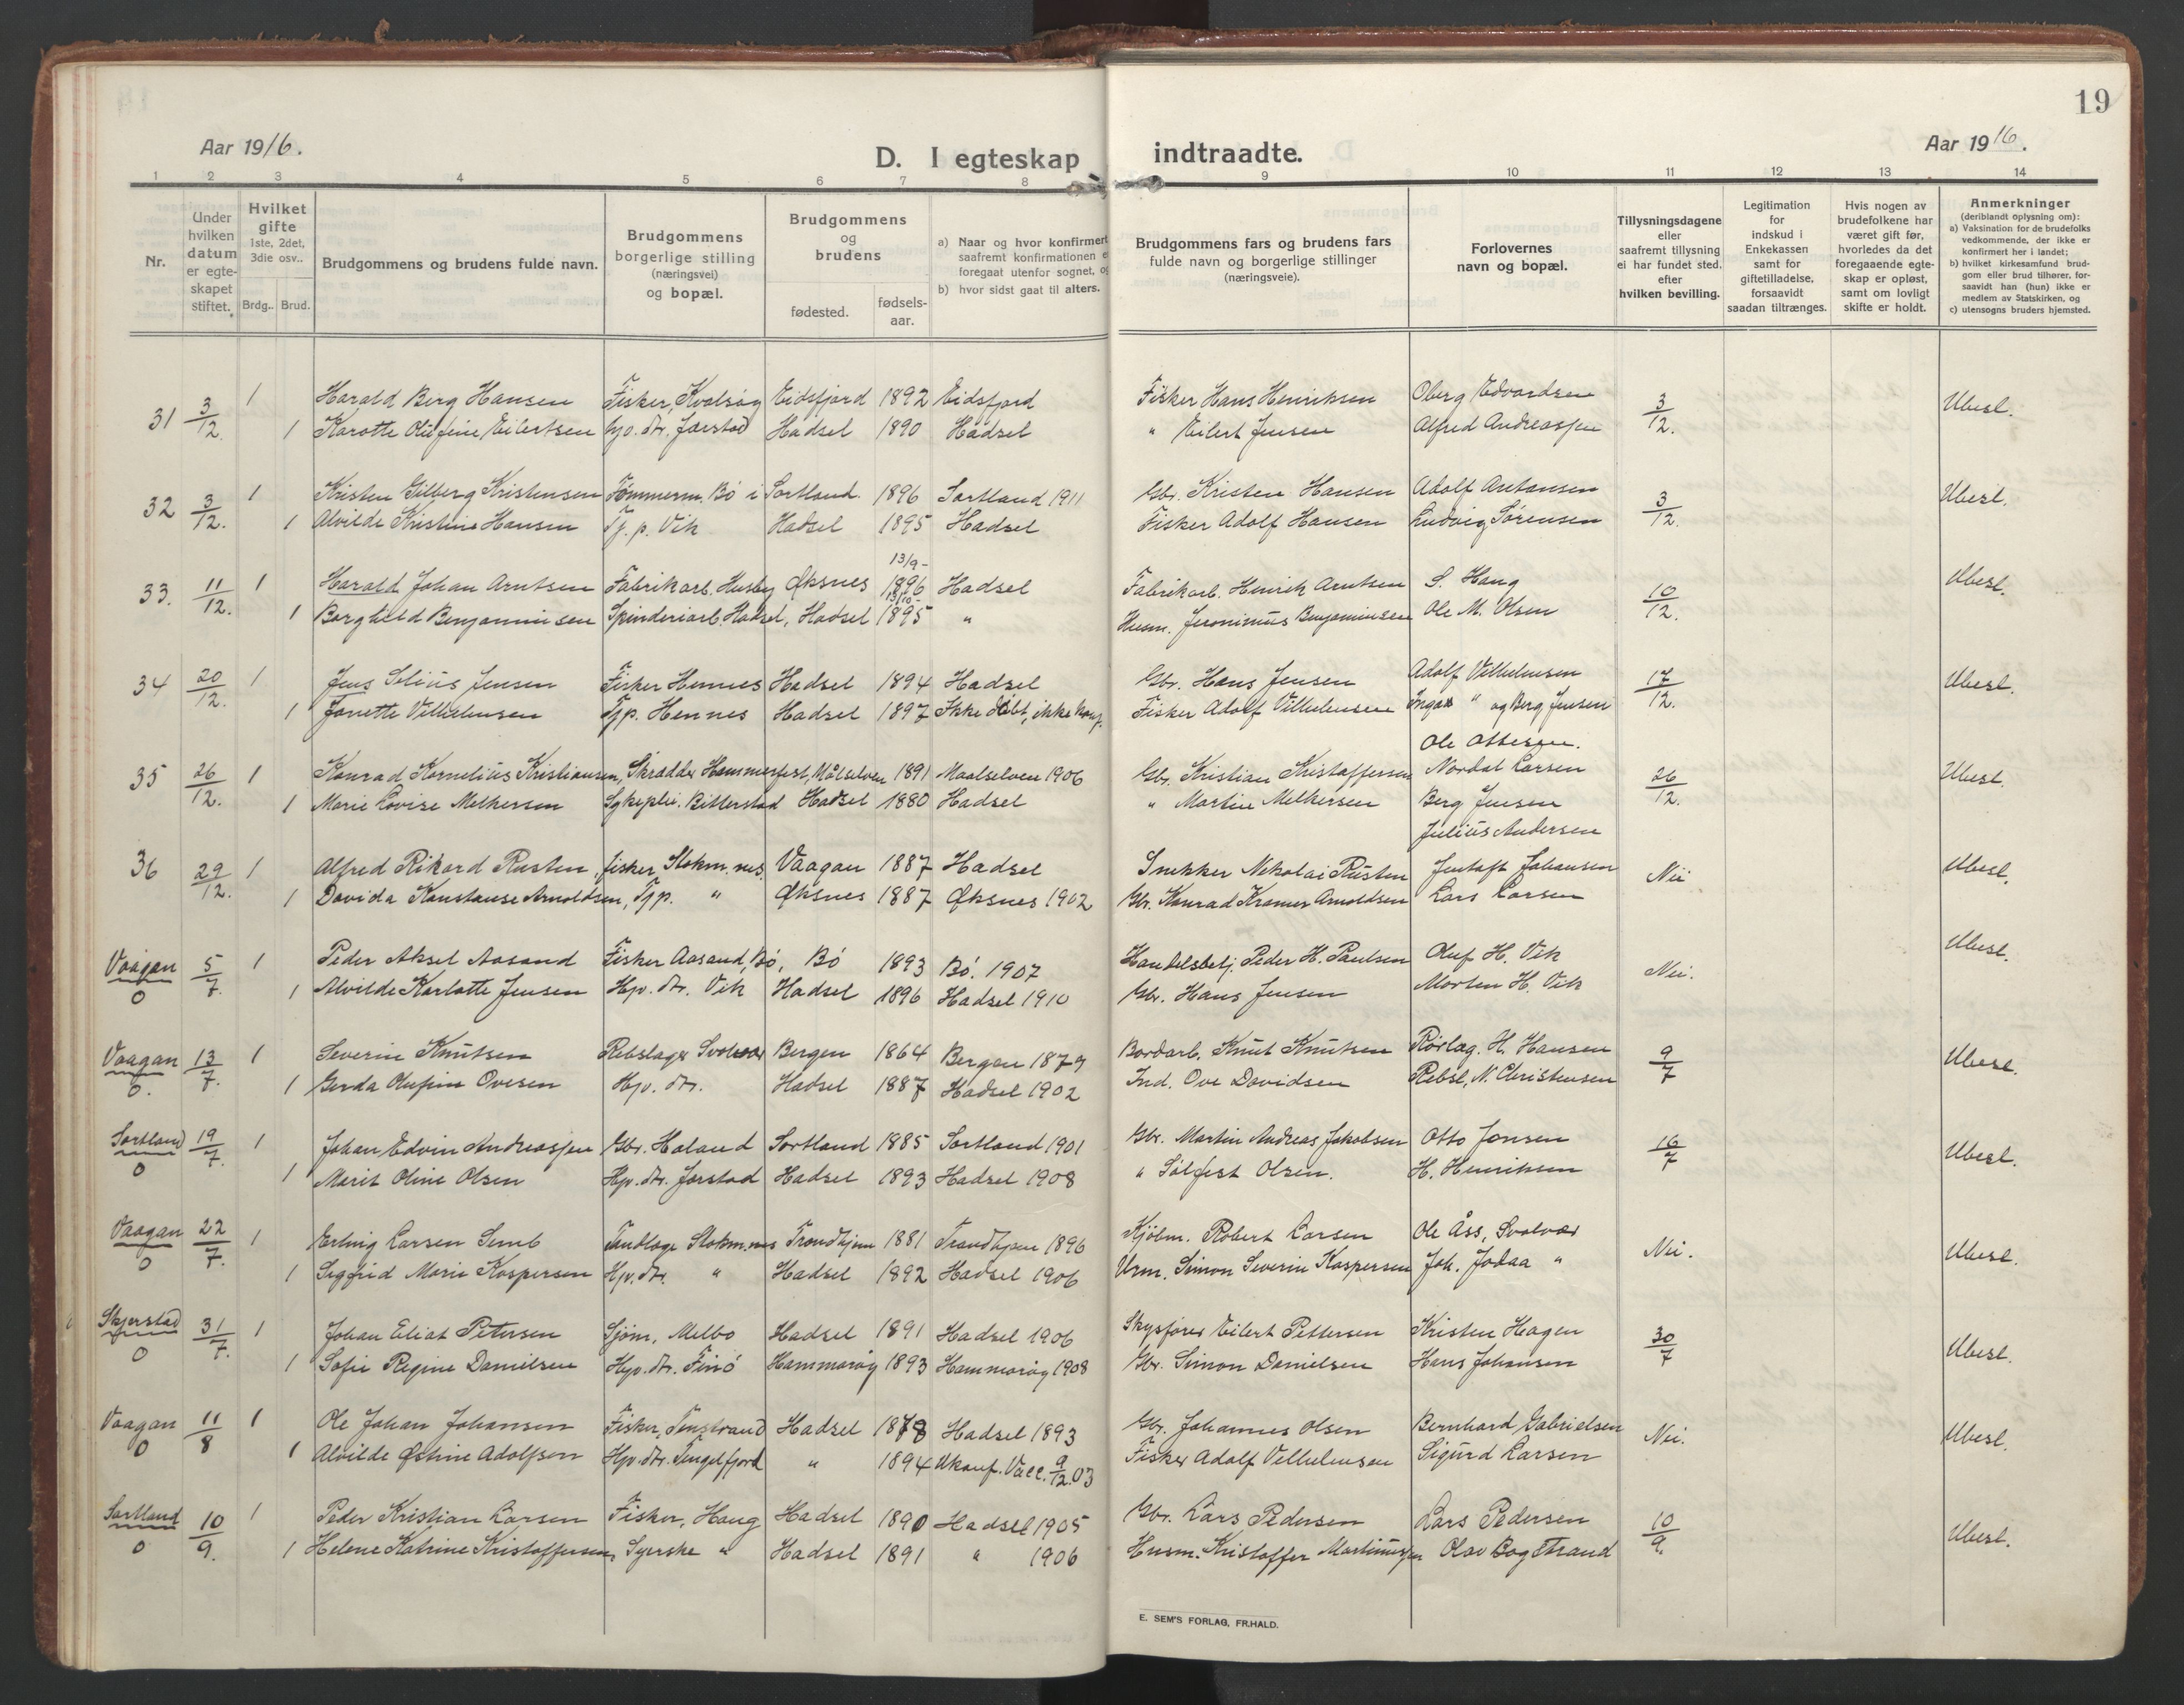 19
Aar 1916.
D. I egteskap indtraadte.
Aar 1916.
1 2 3 4 5 6 7 8 9 10 11 12 13 14
Nr.
Under hvilken datum er egte- skapet stiftet.
Hvilket gifte 1ste, 2det, 3die osv..
Brdg.. Brud.
Brudgommens og brudens fulde navn.
Brudgommens borgerlige stilling (næringsvei) og bopæl.
Brudgommens og brudens
fødested.
fødsels- aar.
a) Naar og hvor konfirmert saafremt konfirmationen foregaat utenfor sognet,
b) hvor sidst gaat til alters.
Brudgommens fars og brudens fars fulde navn og borgerlige stillinger (næringsveie).
Forlovernes navn og bopæl.
Tillysningsdagene eller saafremt tillysning ei har fundet sted. efter hvilken bevilling.
Legitimation for indskud i Enkekassen samt for giftetilladelse, forsaavidt saadan tiltrænges.
Hvis nogen av brudefolkene har været gift før, hvorledes da det foregaaende egte- skap er opløst, samt om lovligt skifte er holdt.
Anmerkninger (deriblandt oplysning om):
a) Vaksination for de brudefolks vedkommende, der ikke er konfirmert her i landet;
b) hvilket kirkesamfund brud- gom eller brud tilhører, for- saavidt han (hun) ikke er medlem av Statskirken, og
c) utensogns bruders hjemsted.
31 3/12. 1 Harald Berg Hansen Fisker, Kvalsøy Eidsfjord 1892 Eidsfjord Fisker Hans Henriksen Oberg Edvardsen 3/12. Ubesl.
1 Karotte Olufine Eilertsen hjv. dtr. Jørstad Hadsel 1890 Hadsel " Eilert Jensen Alfred Andreassen
32 3/12. 1 Kristen Gilberg Kristensen Tømmerm. Bö i Sortland. 1896 Sortland 1911 Gbr. Kristen Hansen Adolf Antonsen 3/12. Ubesl.
1 Alvilde Kristine Hansen Tj. p. Vik Hadsel 1895 Hadsel Fisker Adolf Hansen Ludvig Sørensen
33. 11/12. 1 Harald Johan Arntsen Fabrikarb. Husby Øksnes 13/9- 1896 Hadsel Fabrikarb. Henrik Arntsen S. Haug 10/12. Ubesl.
1 Borghild Benjaminsen Spinderiarb. Hadsel, Hadsel 1895 " Husm. Jeronimus Benjaminsen Ole M. Olsen
34 20/12. 1 Jens Selius Jensen Fisker Hennes Hadsel 1894 Hadsel Gbr. Hans Jensen Adolf Vilhelmsen 17/12. Ubesl.
1 Janette Vilhelmsen Tjp. Hennes Hadsel 1897 Ikke döbt, ikke konf. Fisker Adolf Vilhelmsen Inga " og Berg Jensen
Ole Ottesen.
35 26/12. 1 Konrad Kornelius Kristiansen, Skrædder Hammerfest, Målselven 1891 Maalselven 1906 Gbr. Kristian Kristoffersen Nordal Larsen 26/12. Ubesl.
1 Marie Lovise Melkersen Sykeplei. Bitterstad Hadsel 1880 Hadsel " Martin Melkersen Berg Jensen
Julius Andersen
36 29/12. 1 Alfred Rikard Rusten, fisker Stokm.nes. Vaagan 1887 Hadsel Snekker Nikolai Rusten Jentoft Johansen Nei Ubesl.
1 Davida Konstanse Arnoldsen, Tjp. " Øksnes 1887 Øksnes 1902 Gbr. Konrad Kramer Arnoldsen Lars Larsen
Vaagan 0 5/7. 1 Peder Aksel Aasand Fisker Aasand, Bö, Bö 1893 Bö. 1907 Handelsbetj. Peder H. Paulsen Oluf H. Vik Nei. Ubesl.
1 Alvilde Karlotte Jensen Hjv. dtr. Vik Hadsel 1896 Hadsel 1910 Gbr. Hans Jensen Morten H. Vik
Vaagan 0. 13/7. 1 Severin Knutsen Rebslager Svolvær Bergen 1864 Bergen 1879 Bordarb. Knut Knutsen Rørlæg. H. Hansen 9/7 Ubesl.
1 Gerda Olufine Ovesen Hjv. dtr. Hadsel 1887 Hadsel 1902 Ind. Ove Davidsen Rebsl. N. Christensen
Sortland 0 19/7. 1 Johan Edvin Andreassen Gbr. Holand Sortland 1885 Sortland 1901 Gbr. Martin Andreas Jakobsen Otto Jensen 16/7 Ubesl.
1 Marit Oline Olsen Hjv. dtr. Jørstad Hadsel 1893 Hadsel 1908 " Sölfest Olsen. H. Henriksen
Vaagan 0 22/7. 1 Erling Larsen Semb Tandlæge Stokm.nes Trondhjem 1881 Trondhjem 1896 Kjölm. Robert Larsen Ole Åss, Svolvær Nei. Ubesl.
1 Sigfrid Marie Kaspersen Hjv. dtr. " Hadsel 1892 Hadsel 1906 Urm. Simon Severin Kaspersen Joh. Jodaa "
Skjerstad 0 31/7. 1 Johan Eliat Petersen Sjöm. Melbo Hadsel 1891 Hadsel 1906 Skysfører Eilert Pettersen Kristen Hagen 30/7 Ubesl.
1 Sofie Regine Danielsen Hjv. dtr. Finö Hammarøy 1893 Hammarøy 1908 Gbr. Simon Danielsen Hans Johansen
Vaagan 0 11/8 1 Ole Johan Johansen Fisker, Tenstrand Hadsel 1878 Hadsel 1893 Gbr. Johannes Olsen Bernhard Gabrielsen Nei. Ubesl.
1 Alvilde Østine Adolfsen Hjv. dtr. Tengelfjord " 1894 Ukonf. Vacc. 9/12.03 Fisker Adolf Vilhelmsen Sigurd Larsen
Sortland 0 10/9. 1 Peder Kristian Larsen Fisker, Haug Hadsel 1890 Hadsel 1905 Gbr. Lars Pedersen Lars Pedersen 10/9. Ubesl.
1 Helene Katrine Kristoffersen, Syerske " Hadsel 1891 " 1906 Husm. Kristoffer Martinussen Olav Bog Strand
E. SEM'S FORLAG, FR.HALD.